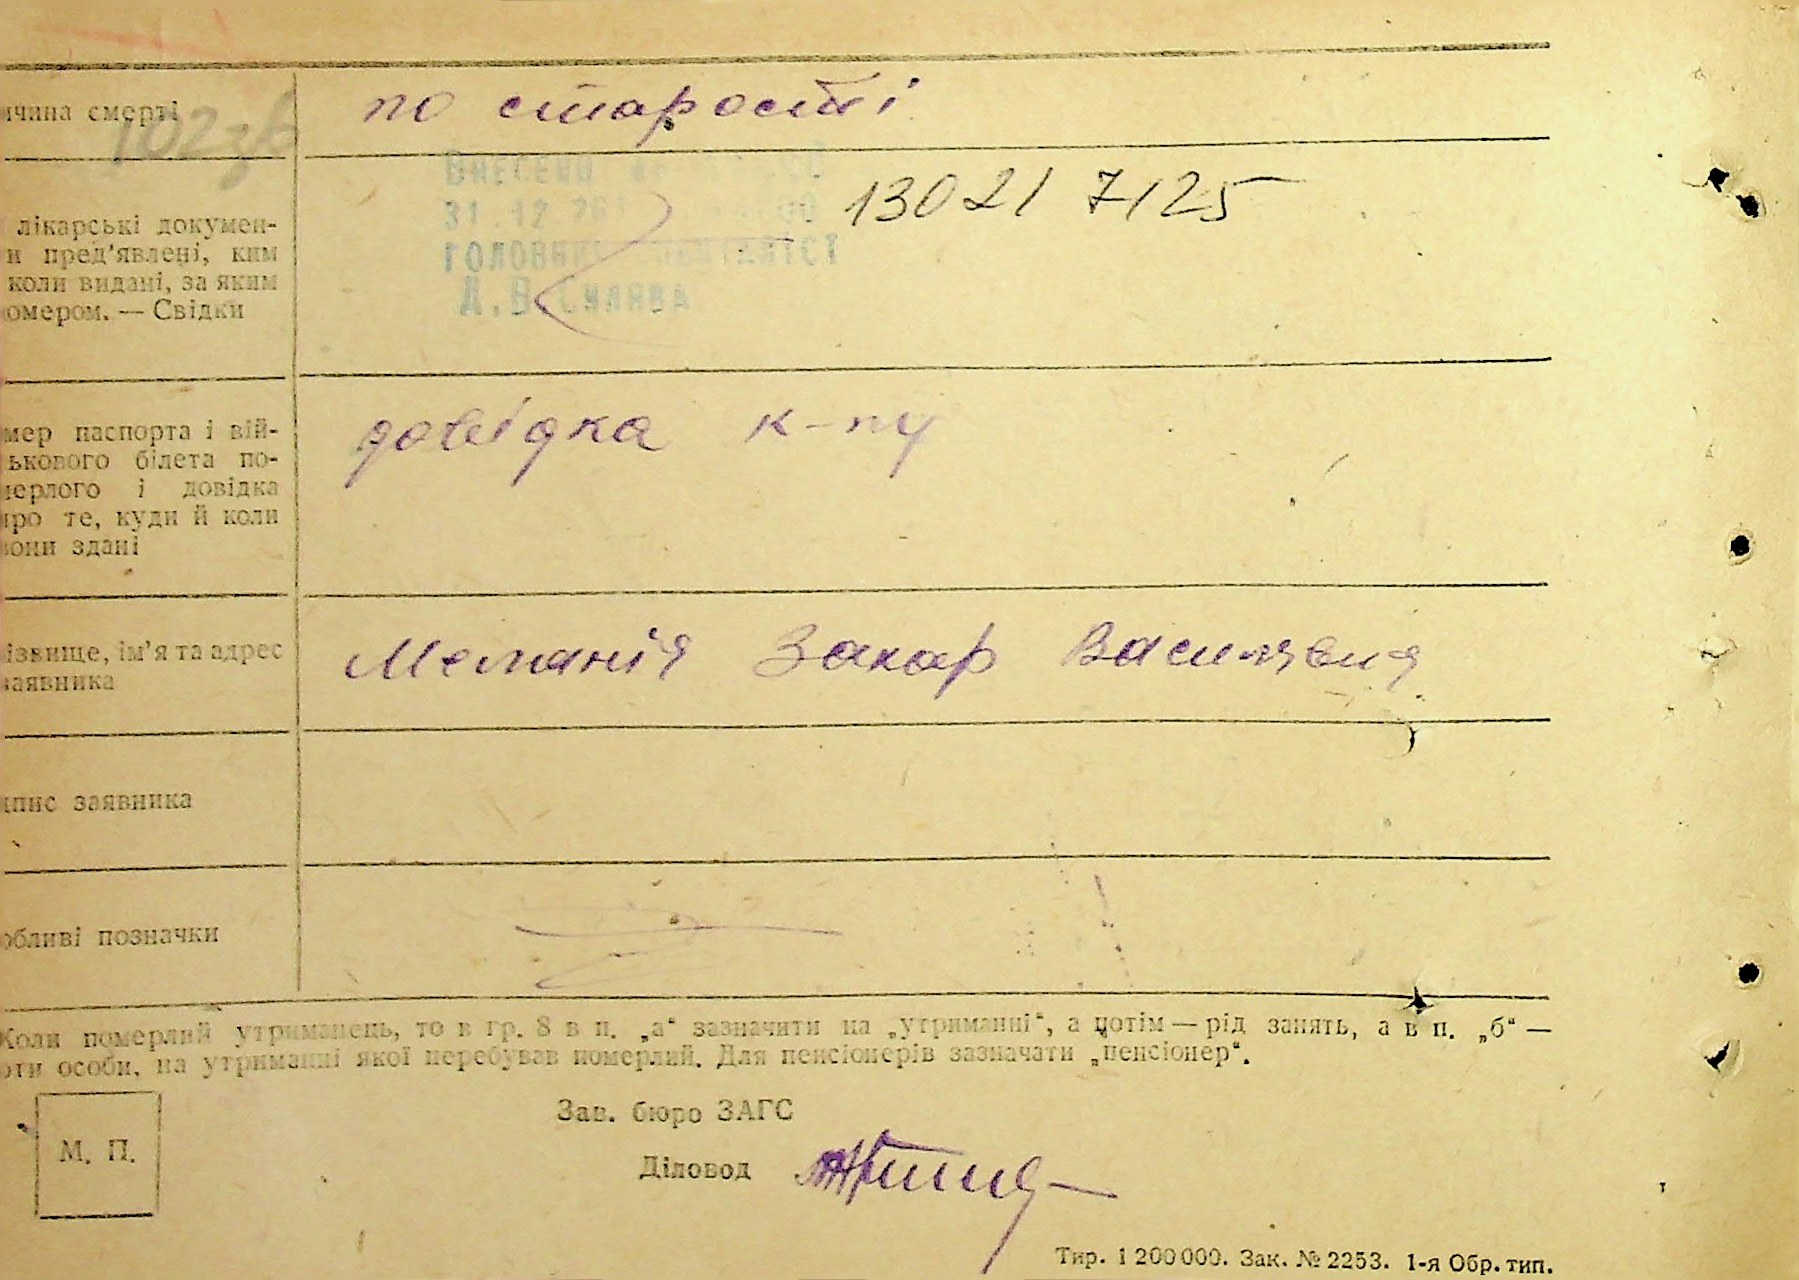 ичина смерті
по старості
102зв
Внесено
31.12.201
13021 7125
головний спеціаліст
Л.В. Силява
лікарські докумен-
и пред'явлені, ким
коли видані, за яким
омером. — Свідки
мер паспорта і вій-
ького білета по-
мерлого і довідка
про те, куди й коли
вони здані
довідка к-пу
ізвище, ім'я та адрес
заявника
Меланія Захар Василівна
пис заявника
обливі позначки
Коли померлий утриманець, то в гр. 8 в п. „а“ зазначити на „утриманні“, а потім — рід занять, а в п. „б“ —
оти особи, на утриманні якої перебував померлий. Для пенсіонерів зазначати „пенсіонер“.
М. П.
Зав. бюро ЗАГС
Діловод
Тир. 1 200 000. Зак. № 2253. 1-я Обр. тип.